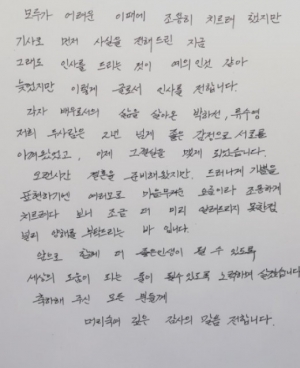 모두가 어려운 이때에 조용히 치르려 했지만
기사로 먼저 사실을 전해드린 지금
그래도 인사를 드리는 것이 예의인것 같아
늦었지만 이렇게 글로서 인사를 전합니다.
각자 배우로서의 삶을 살아온 박하선, 류수영
저희 두사람은 2년 넘게 좋은 감정으로 서로를
아껴왔었고, 이제 그결실을 맺게 되었습니다.
오랜시간 결혼을 준비해왔지만, 드러나게 기쁨을
표현하기엔 여러모로 마음무거운 요즘이라 조용하게
치르려다 보니 조금 더 미리 알려드리지 못한점
널리 양해를 부탁드리는 바 입니다.
앞으로 함께 더 좋은인생이 될 수 있도록
세상의 도움이 되는 둘이 될수 있도록 노력하며 살겠습니다
축하해 주신 모든 분들께
머리숙여 깊은 감사의 말을 전합니다.